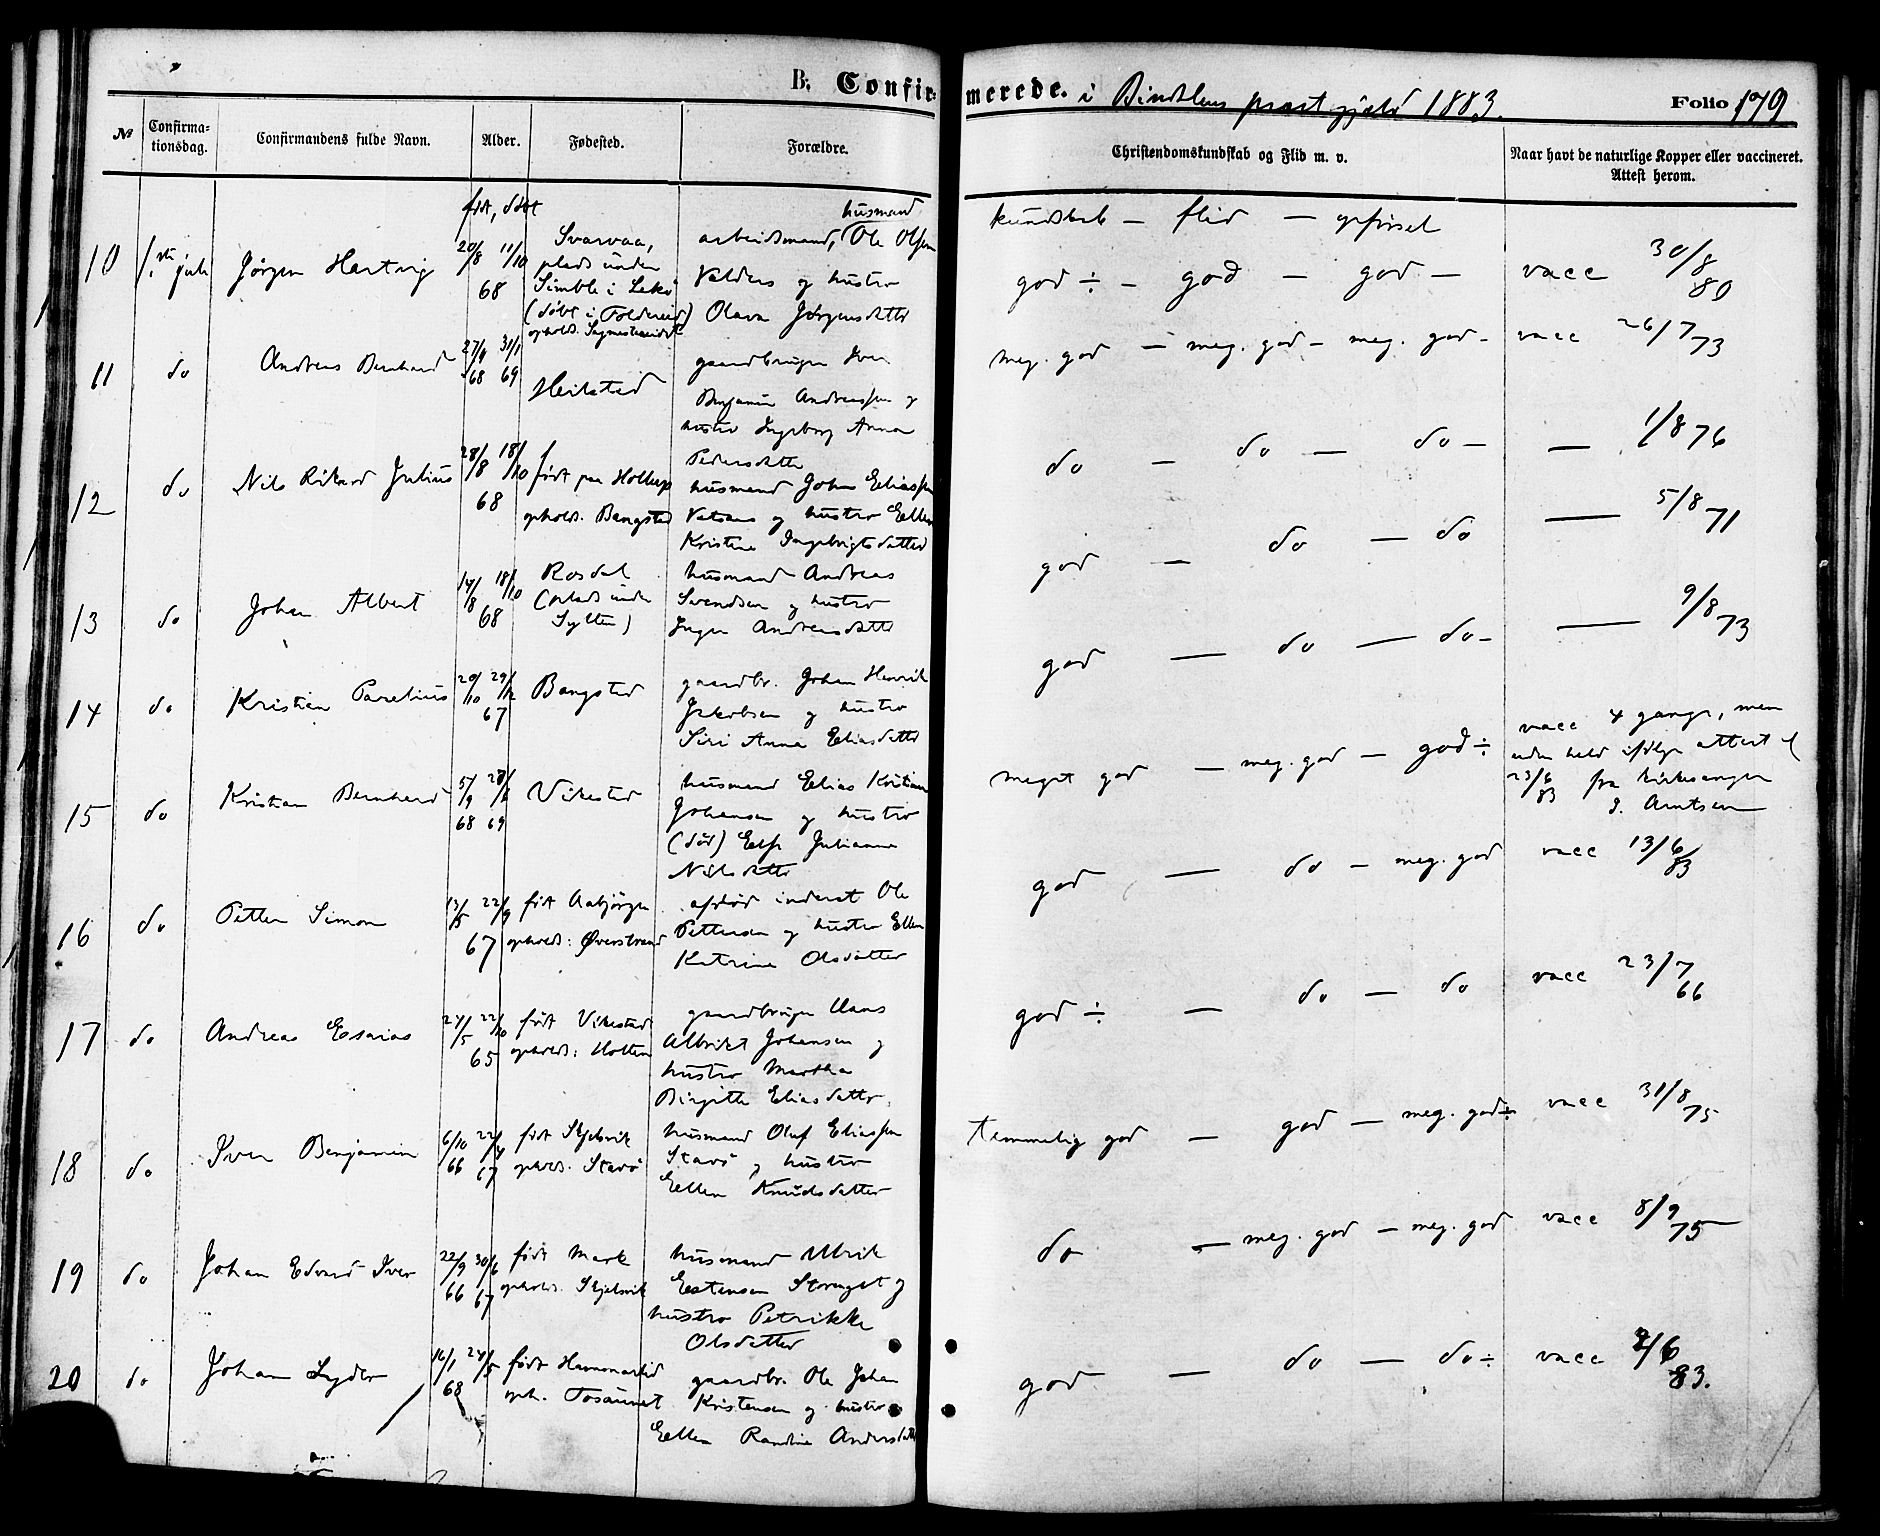 B. Confirmerede. i Bindalens præstegjæld 1883. Folio 179
№ Confirmationsdag. Confirmandens fulde Navn. Alder. Fødested. Forældre. Christendomskundskab og Flid m. v. Naar havt de naturlige Kopper eller vaccineret. Attest herom.
født, døbt kundskab — flid — opførsel
10 1ste juli Jørgen Hartvig 20/8 11/10 68 Svarvaa,
plads under
Simble i Lekø
(døbt i Foldereid)
arbeidsmand, husmand Ole Olsen
Valders og hustru
Olava Jørgensdatter
god ÷ — god — god — vacc 30/8 80
11 do Andreas Bernhard 27/9 31/1 68 69 Heilstad
gaardbruger Iver
Benjamin Andreassen og
hustru Ingeborg Anna
Pedersdatter
meg. god — meg. god — meg. god — vacc 26/7 73
12 do Nils Rikard Julius 28/8 18/10 68 født paa Hollup
ophold. Bangstad
husmand Johan Eliassen
og hustru Ellen
Kristine Ingebrigtsdatter
do — do — do — — 1/8 76
13 do Johan Albert 14/8 18/10 68 Rosdal
(plads under
Sylten)
husmand Andreas
Svendsen og hustru
Inger Andreasdatter
god — do — do — 5/8 71
14 do Kristian Parelius 20/10 29/12 67 Bangstad
gaardbr. Johan Henrik
Jakobsen og hustru
Siri Anna Eliasdatter
god — do — do — — 9/8 73
15 do Kristian Bernhard 5/9 28/6 68 69 Vikestad
husmand Elias Kristian
Johansen og hustru
(død) Else Julianne
Nilsdatter
meget god — meg. god — god ÷
vacc 4 gange, men
uden held ifølge attest
23/6 83 fra kirkesanger
J. Arntsen
16 do Petter Simon 13/5 22/9 67 født Aabjørgen
ophold: Øverstrand
afdød inderst Ole
Pettersen og hustru Ellen
Katrine Olsdatter
god — do — meg. god vacc 13/6 83
17 do Andreas Esaias 24/5 22/10 65 født Vikestad
ophold: Holten
gaardbruger Hans
Albrikt Johansen og
hustru Martha
Birgitte Eliasdatter.
god ÷ — do — do vacc 23/7 66
18 do Iver Benjamin 6/10 22/4 66 67 født Skjelsvik
ophold. Stavø
husmand Oluf Eliassen
Stavø og hustru
Ellen Knudsdatter
temmelig god — god — meg. god ÷ vacc 31/8 75
19 do Johan Edvard Iver 22/9 30/6 66 67 født Mark
ophold. Skjelsvik
husmand Ulrik
Estensen og
hustru Petrikke
Olsdatter
do — meg. god — meg. god vacc 8/9 75
20 do Johan Lyder 16/1 24/5 68 født
oph. Tosaunet
gaardbr. Ole Johan
Kristensen og hustru
Ellen Randine Andersdatter
god — do — do ÷ vacc 2/6 83.